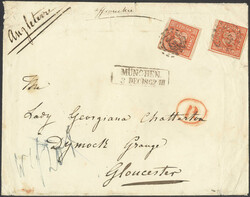 Angleterre
affranchie
MÜNCHEN
2 DEC 1862 III
The
Lady Georgiana Chatterton
Dymock Grange
Gloucester